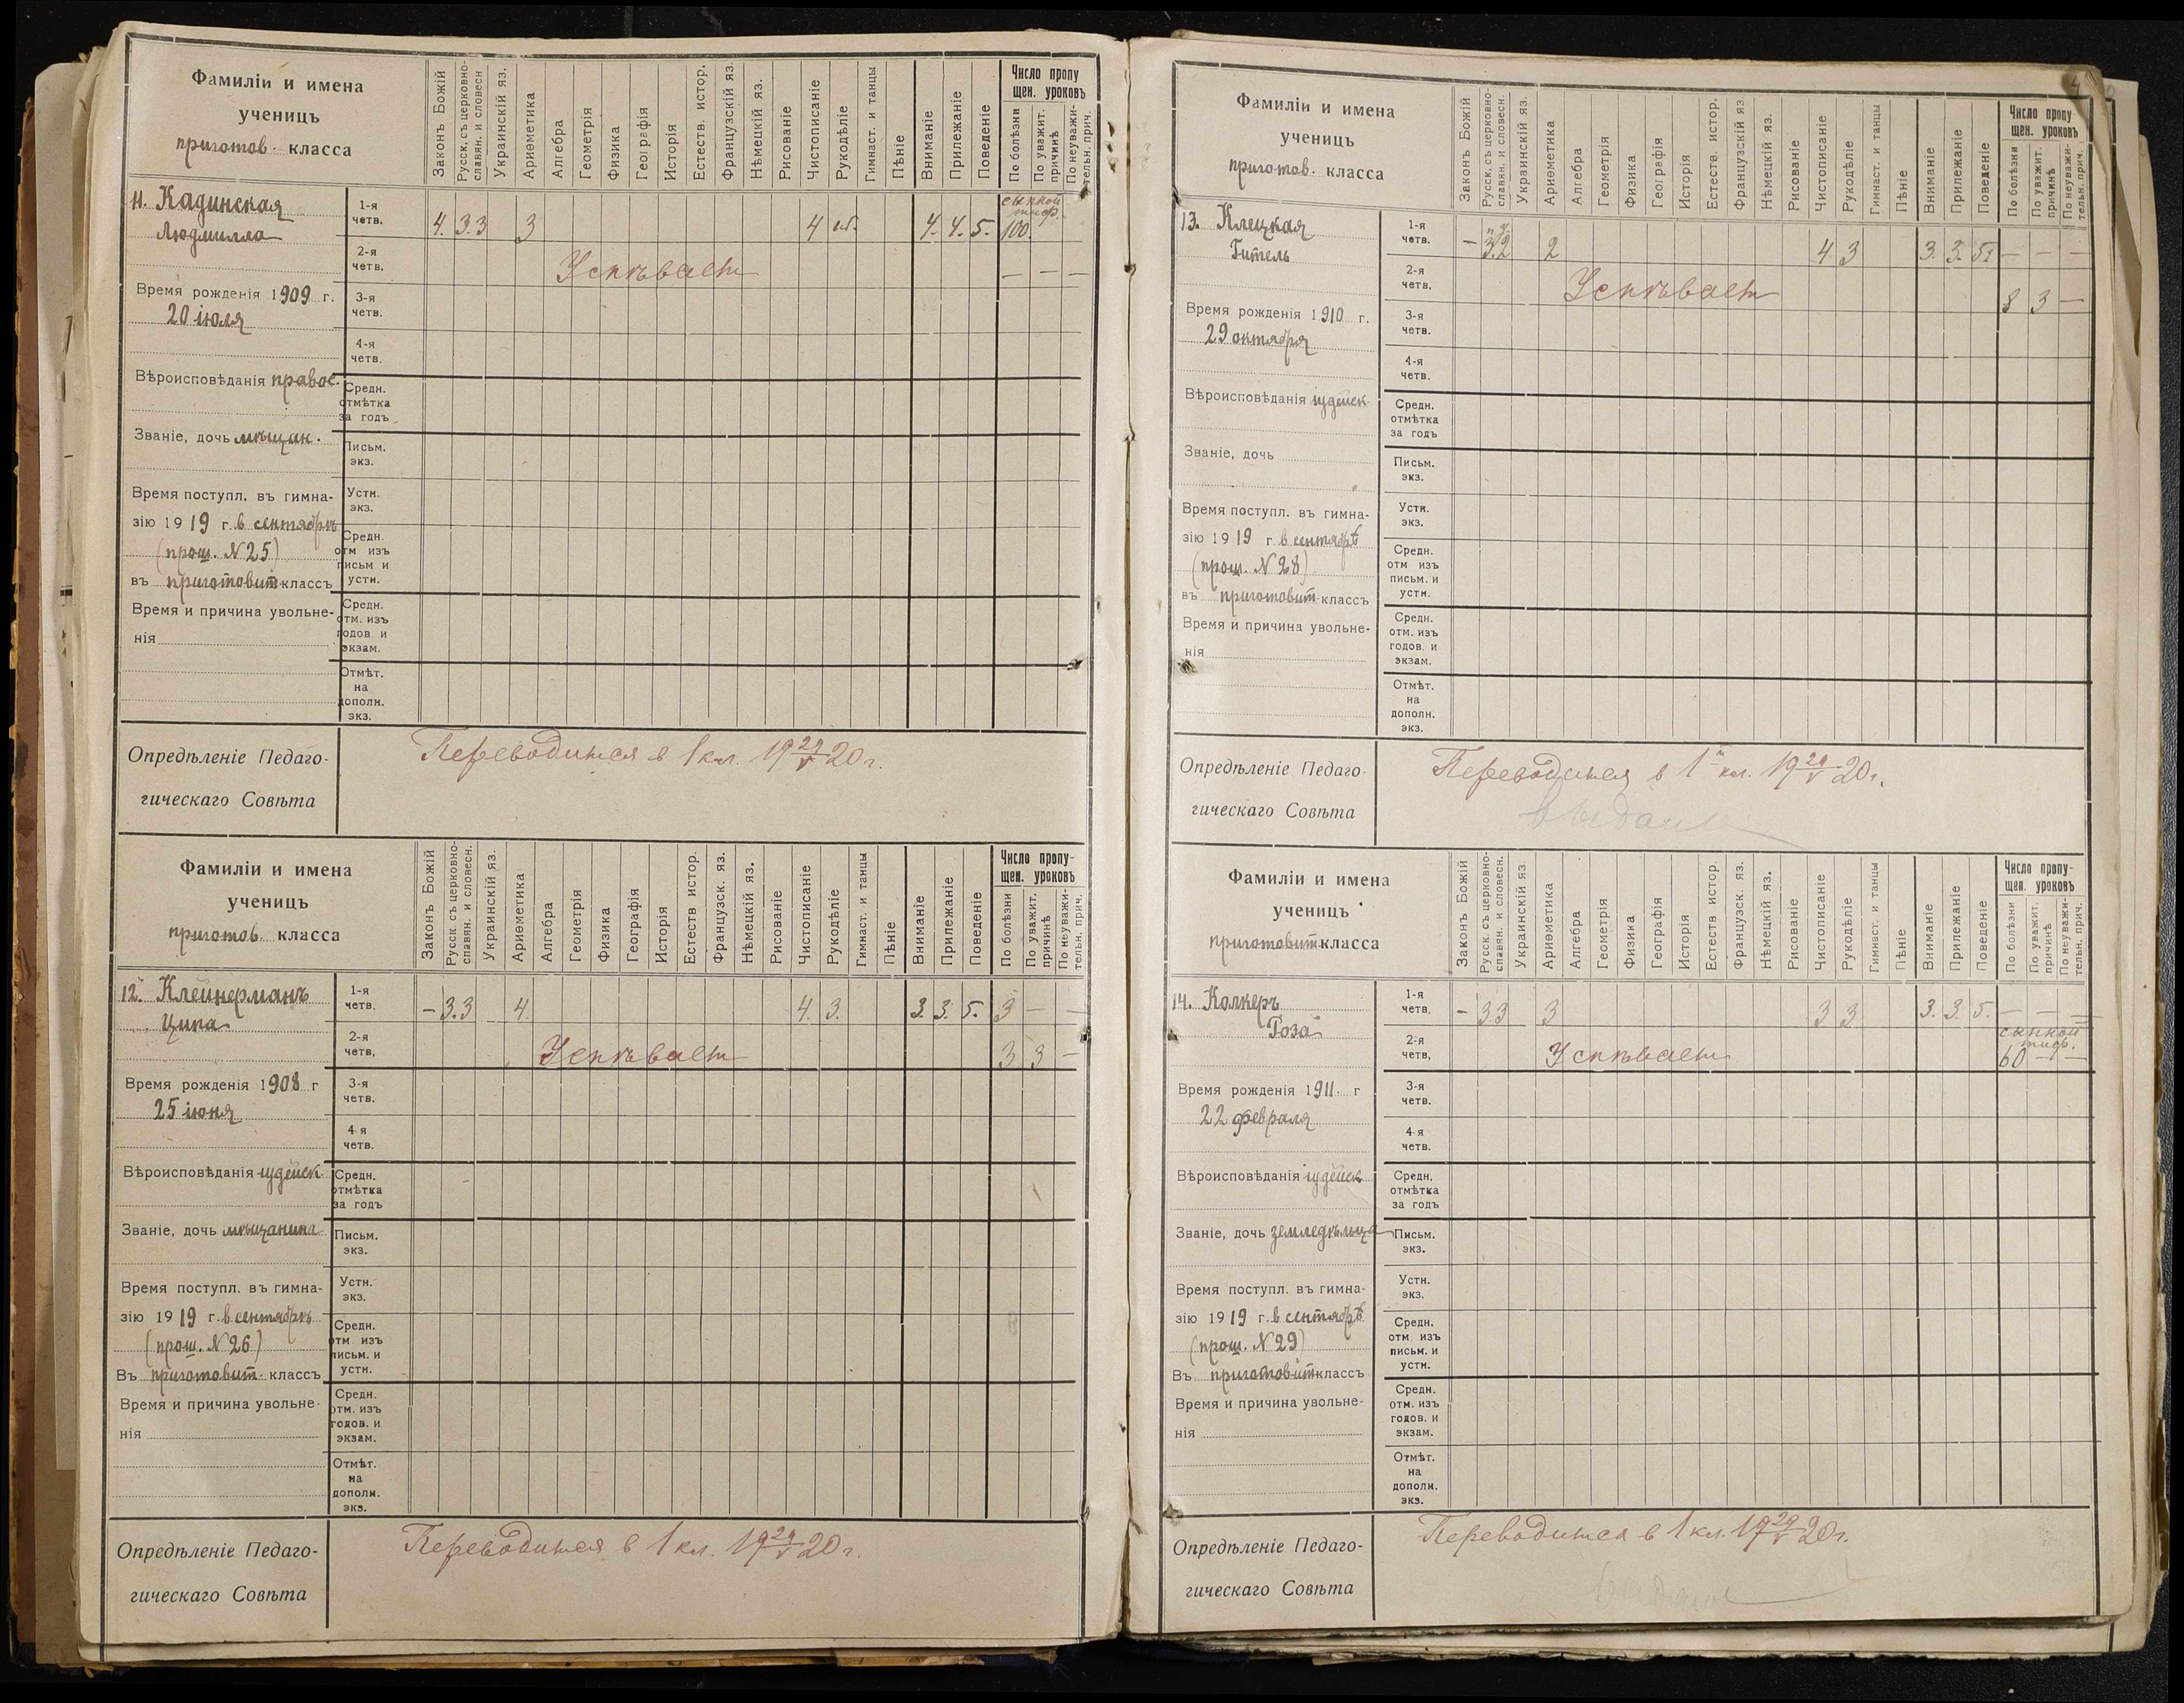 Фамиліи и имена
ученицъ
приготов. класса
Законъ Божій
Русск. съ церковно-
славян. и словесн
Украинскій яз.
Ариѳметика
Алгебра
Геометрія
Физика
Географія
Исторія
Естеств. истор.
Французскій яз.
Нѣмецкій яз.
Рисованіе
Чистописаніе
Рукодѣліе
Гимнаст. и танцы
Пѣніе
Вниманіе
Прилежаніе
Поведеніе
Число пропу
щен. уроковъ
По болѣзни
По уважит.
причинѣ
По неуважи-
тельн. прич.
11. Кадинская
Людмилла
1-я
четв.
4. 3.3 3 4 4. 4. 5. сыпной
тиф.
100.
2-я
четв.
Успѣваетъ — — —
Время рожденія 1909 г.
20 іюля
3-я
четв.
4-я
четв.
Вѣроисповѣданія правос.
Средн.
отмѣтка
за годъ
Званіе, дочь мѣщан.
Письм.
экз.
Время поступл. въ гимна-
зію 1919 г. в сентябрѣ
(прош. N 25)
въ приготовит. классъ
Устн.
экз.
Средн.
отм изъ
письм и
устн.
Время и причина увольне-
нія
Средн.
отм. изъ
годов. и
экзам.
Отмѣт.
на
дополн.
экз.
Опредѣленіе Педаго-
гическаго Совѣта
Переводится в 1 кл. 19 29/V 20 г.
Фамиліи и имена
ученицъ
приготов. класса
Законъ Божій
Русск. съ церковно-
славян. и словесн.
Украинскій яз.
Ариѳметика
Алгебра
Геометрія
Физика
Географія
Исторія
Естеств истор.
Французск. яз.
Нѣмецкій яз.
Рисованіе
Чистописаніе
Рукодѣліе
Гимнаст. и танцы
Пѣніе
Вниманіе
Прилежаніе
Поведеніе
Число пропу-
щен. уроковъ
По болѣзни
По уважит.
причинѣ
По неуважи-
тельн. прич.
12. Клейнерманъ
Ципа
1-я
четв.
— 3.3 4. 4. 3. 3. 3. 5. 3 — —
2-я
четв,
Успѣваетъ 3 3 —
Время рожденія 1908 г
25 іюня
3-я
четв.
4-я
четв.
Вѣроисповѣданія іудейск.
Средн.
отмѣтка
за годъ
Званіе, дочь мѣщанина
Письм.
экз.
Время поступл. въ гимна-
зію 1919 г. в сентябрѣ
(прош. N 26)
Въ приготовит. классъ
Устн.
экз.
Средн.
отм. изъ
письм. и
устн.
Время и причина увольне-
нія
Средн.
отм. изъ
годов. и
экзам.
Отмѣт.
на
дополн.
экз.
Опредѣленіе Педаго-
гическаго Совѣта
Переводится в 1 кл. 19 29/V 20 г.
Фамиліи и имена
ученицъ
приготов. класса
Законъ Божій
Русск. съ церковно-
славян. и словесн.
Украинскій яз.
Ариѳметика
Алгебра
Геометрія
Физика
Географія
Исторія
Естеств. истор.
Французскій яз
Нѣмецкій яз.
Рисованіе
Чистописаніе
Рукодѣліе
Гимнаст. и танцы
Пѣніе
Вниманіе
Прилежаніе
Поведеніе
Число пропу
щен. уроковъ
По болѣзни
По уважит.
причинѣ
По неуважи-
тельн. прич.
13. Клецкая
Гитель
1-я
четв.
— 3.2 2 4 3 3. 3. 5. — — —
2-я
четв.
Успѣваетъ 8 3 —
Время рожденія 1910 г.
29 октября
3-я
четв.
4-я
четв.
Вѣроисповѣданія іудейск
Средн.
отмѣтка
за годъ
Званіе, дочь
Письм.
экз.
Время поступл. въ гимна-
зію 1919 г. в сентябрѣ
(прош. N 28)
въ приготовит. классъ
Устн.
экз.
Средн.
отм изъ
письм. и
устн.
Время и причина увольне-
нія
Средн.
отм. изъ
годов. и
экзам.
Отмѣт.
на
дополн.
экз.
Опредѣленіе Педаго-
гическаго Совѣта
Переводится в 1 кл. 19 29/V 20 г.
Фамиліи и имена
ученицъ
приготовит. класса
Законъ Божій
Русск. съ церковно-
славян. и словесн.
Украинскій яз.
Ариѳметика
Алгебра
Геометрія
Физика
Географія
Исторія
Естеств истор
Французск. яз.
Нѣмецкій яз.
Рисованіе
Чистописаніе
Рукодѣліе
Гимнаст. и танцы
Пѣніе
Вниманіе
Прилежаніе
Поведеніе
Число пропу-
щен. уроковъ
По болѣзни
По уважит.
причинѣ
По неуважи-
тельн. прич.
14. Колкеръ
Роза
1-я
четв.
— 3.3 3 3 3 3. 3. 5. — — —
2-я
четв,
Успѣваетъ сыпной
тиф.
60 — —
Время рожденія 1911. г
22 февраля
3-я
четв.
4-я
четв.
Вѣроисповѣданія іудейск
Средн,
отмѣтка
за годъ
Званіе, дочь земледѣльца
Письм.
экз.
Время поступл. въ гимна-
зію 1919 г. в сентябрѣ
(прош. N 29)
Въ приготовит классъ
Устн.
экз.
Средн.
отм. изъ
письм. и
устн.
Время и причина увольне-
нія
Средн.
отм. изъ
годов. и
экзам.
Отмѣт.
на
дополн.
экз.
Опредѣленіе Педаго-
гическаго Совѣта
Переводится в 1 кл. 19 29/V 20 г.